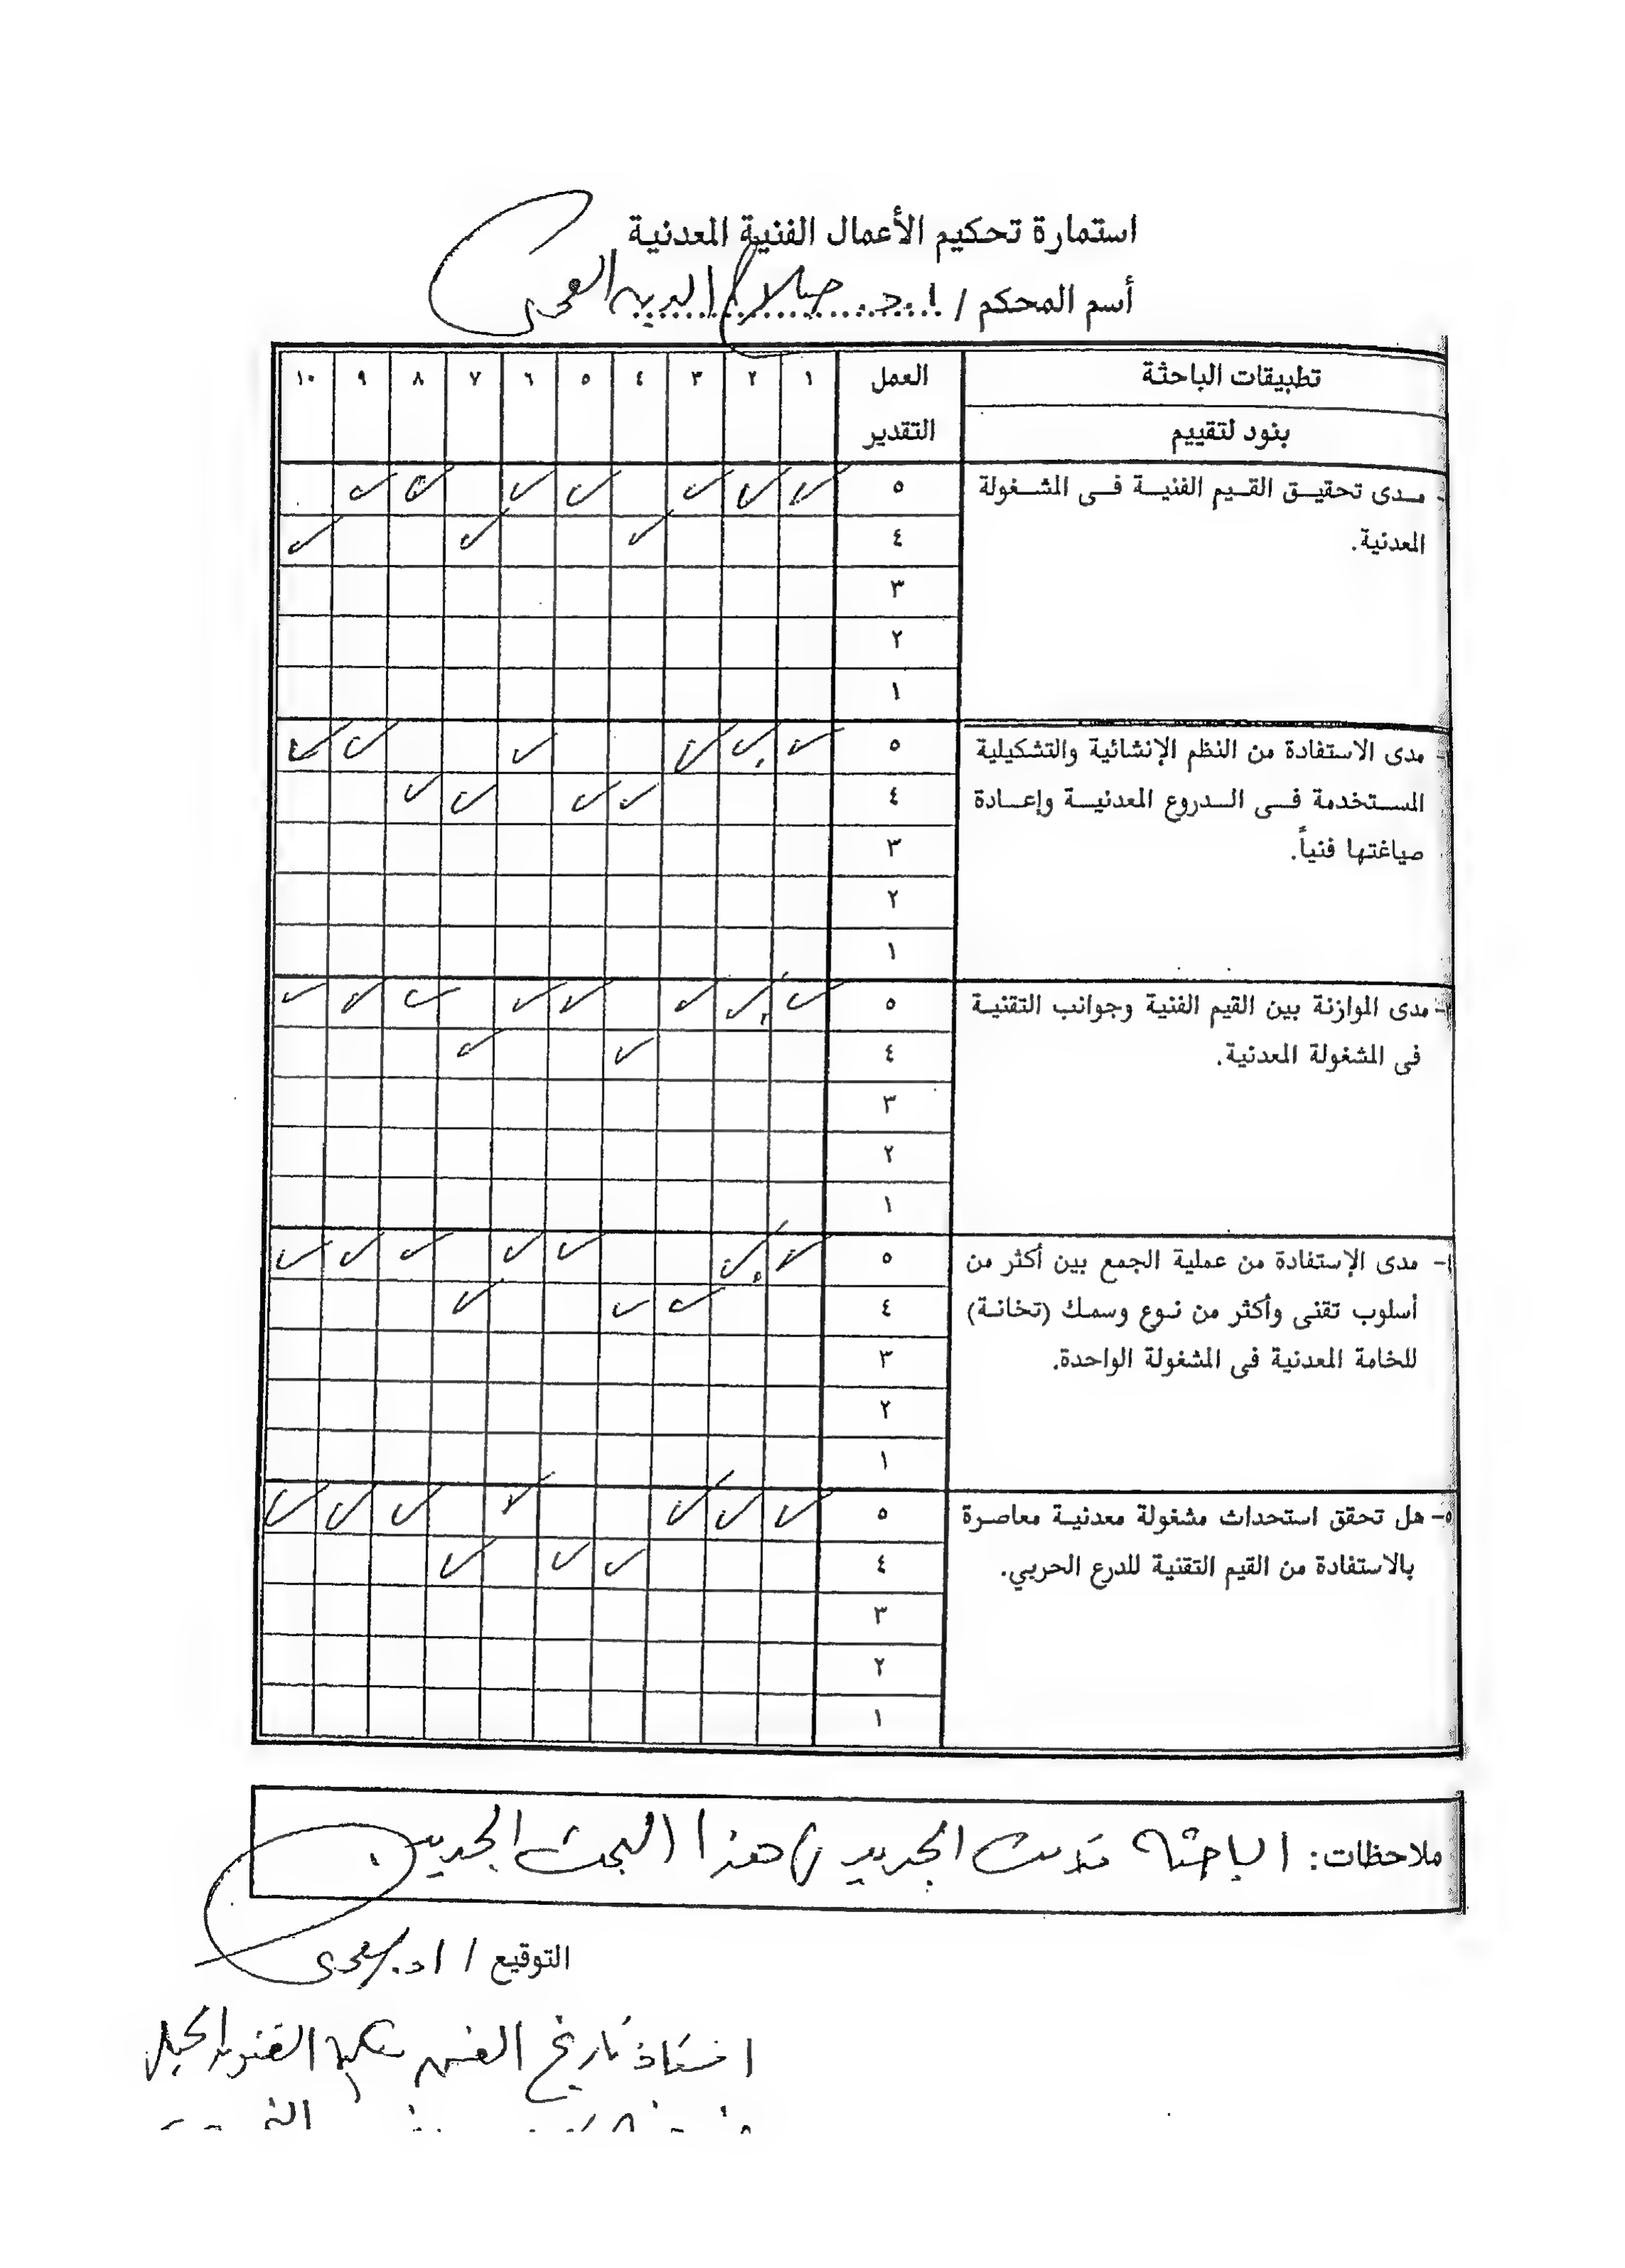 استمارة تحكيم الأعمال الفنية المعدنية
أسم المحكم / ا.د. صلاح الدين
تطبيقات الباحثة العمل ١ ٢ ٣ ٤ ٥ ٦ ٧ ٨ ٩ ١٠
بنود لتقييم التقدير
- مدى تحقيق القيم الفنية فى المشغولة ٥ ✓ ✓ ✓ ✓ ✓ ✓ ✓
المعدنية. ٤ ✓ ✓ ✓
٣
٢
١
- مدى الاستفادة من النظم الإنشائية والتشكيلية ٥ ✓ ✓ ✓ ✓ ✓ ✓
المستخدمة فى الدروع المعدنية وإعادة ٤ ✓ ✓ ✓ ✓
صياغتها فنياً. ٣
٢
١
- مدى الموازنة بين القيم الفنية وجوانب التقنية ٥ ✓ ✓ ✓ ✓ ✓ ✓ ✓ ✓
فى المشغولة المعدنية. ٤ ✓ ✓
٣
٢
١
- مدى الإستفادة من عملية الجمع بين أكثر من ٥ ✓ ✓ ✓ ✓ ✓ ✓ ✓
أسلوب تقنى وأكثر من نوع وسمك (تخانة) ٤ ✓ ✓ ✓
للخامة المعدنية فى المشغولة الواحدة. ٣
٢
١
٥- هل تحقق استحداث مشغولة معدنية معاصرة ٥ ✓ ✓ ✓ ✓ ✓ ✓ ✓
بالاستفادة من القيم التقنية للدرع الحربي. ٤ ✓ ✓ ✓
٣
٢
١
ملاحظات: الباحثة قدمت الجديد فى هذا البحث الجديد.
التوقيع / ا.د.
استاذ تاريخ الفن بكلية الفنون الجميلة